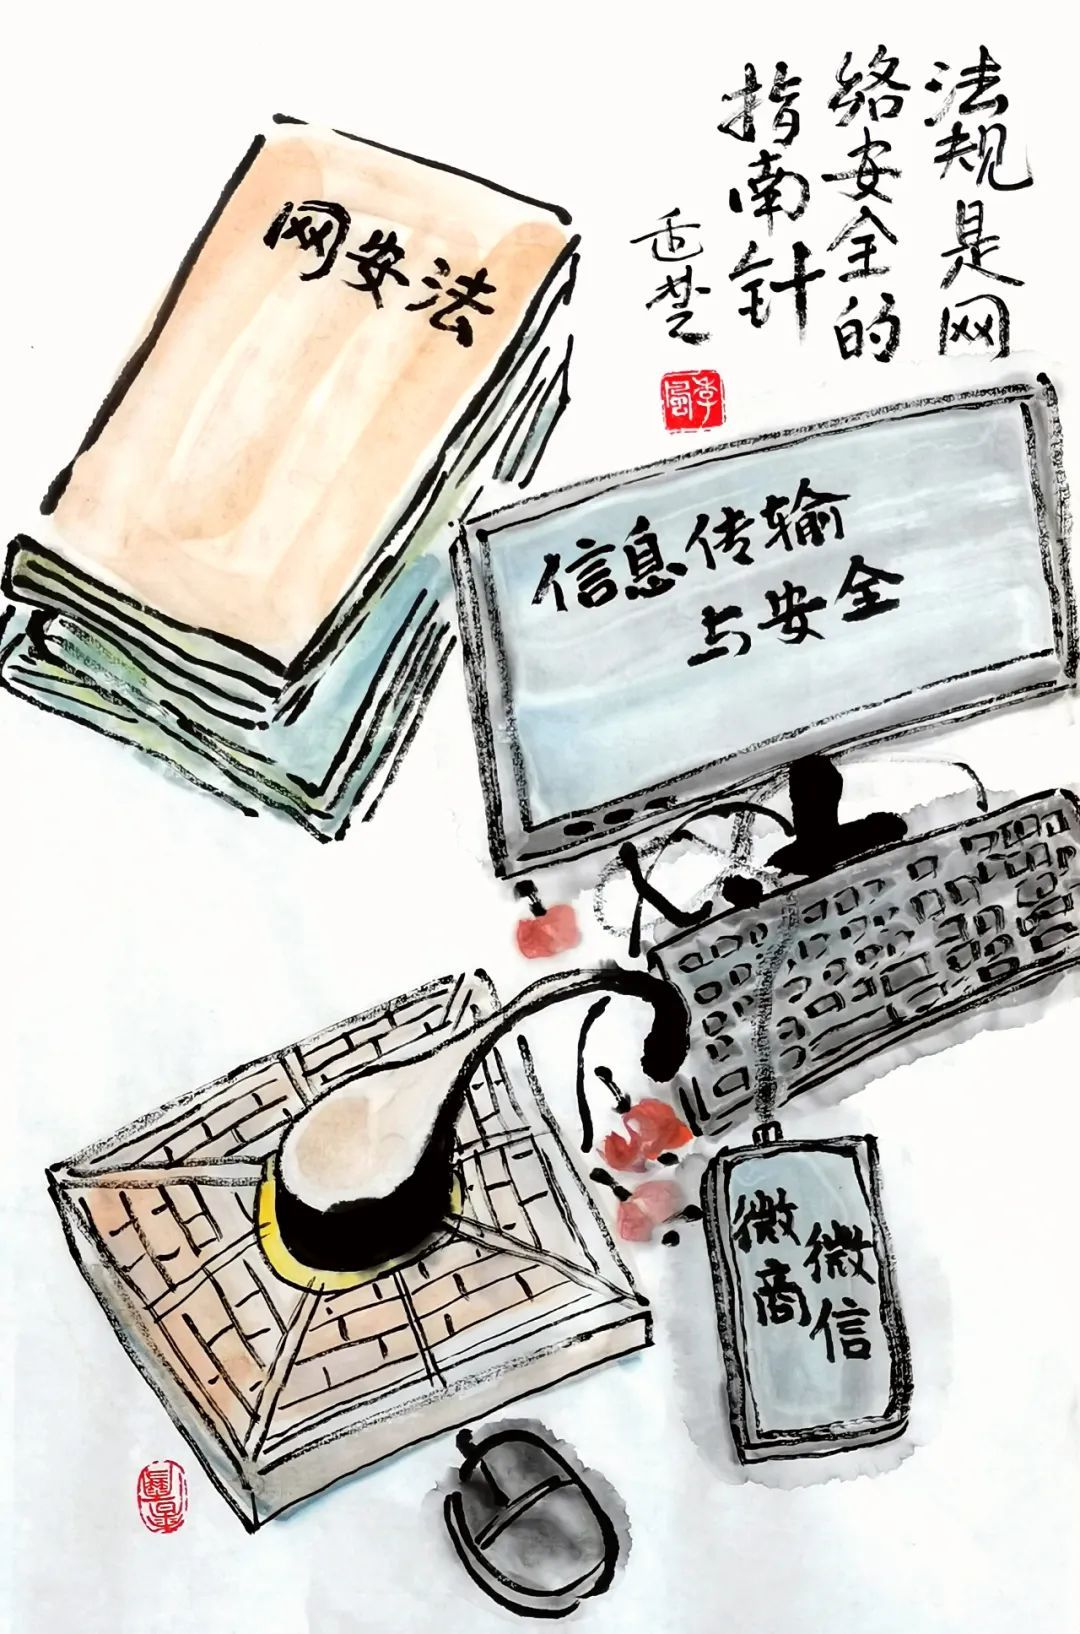 法规是网
络安全的
指南针
网安法
信息传输
与安全
微信
微商